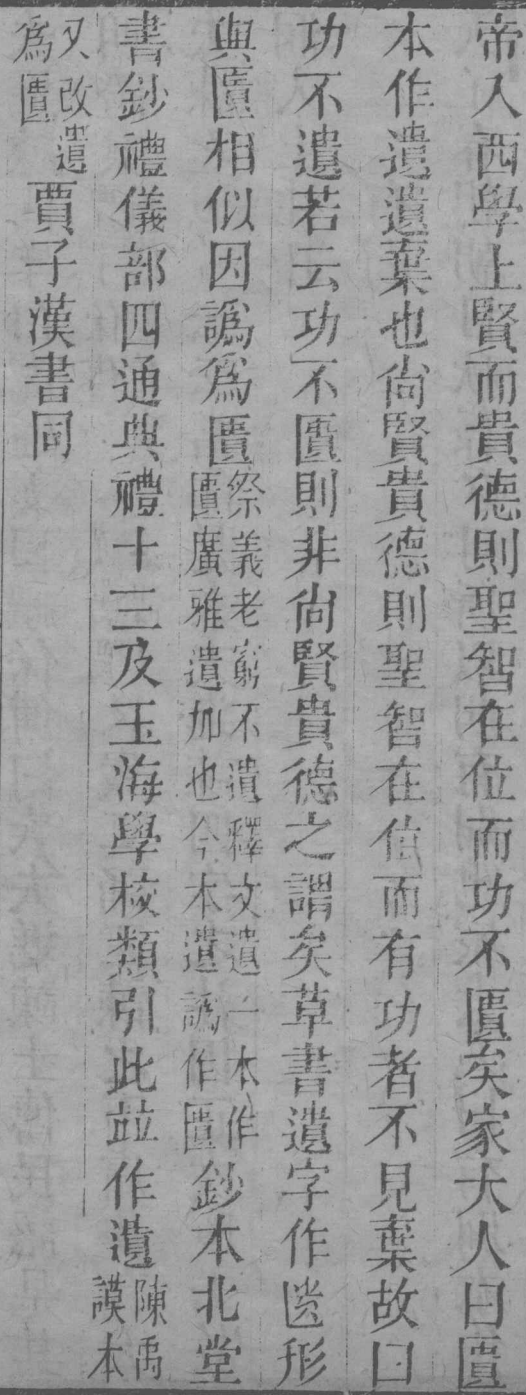 帝入西學上賢而貴德則聖智在位而功不匱矣家大人曰匱
本作遺遺棄也尙賢貴德則聖智在位而有功者不見棄故曰
功不遺若云功不匱則非尙賢貴德之謂矣草書遺字作形
與匱相似因譌爲匱祭義老窮不遺釋文遺一本作匱廣雅遺加也今本遺譌作匱鈔本北堂
書鈔禮儀部四通典禮十三及玉海學校類引此竝作遺陳禹謨本
又改遺爲匱賈子漢書同